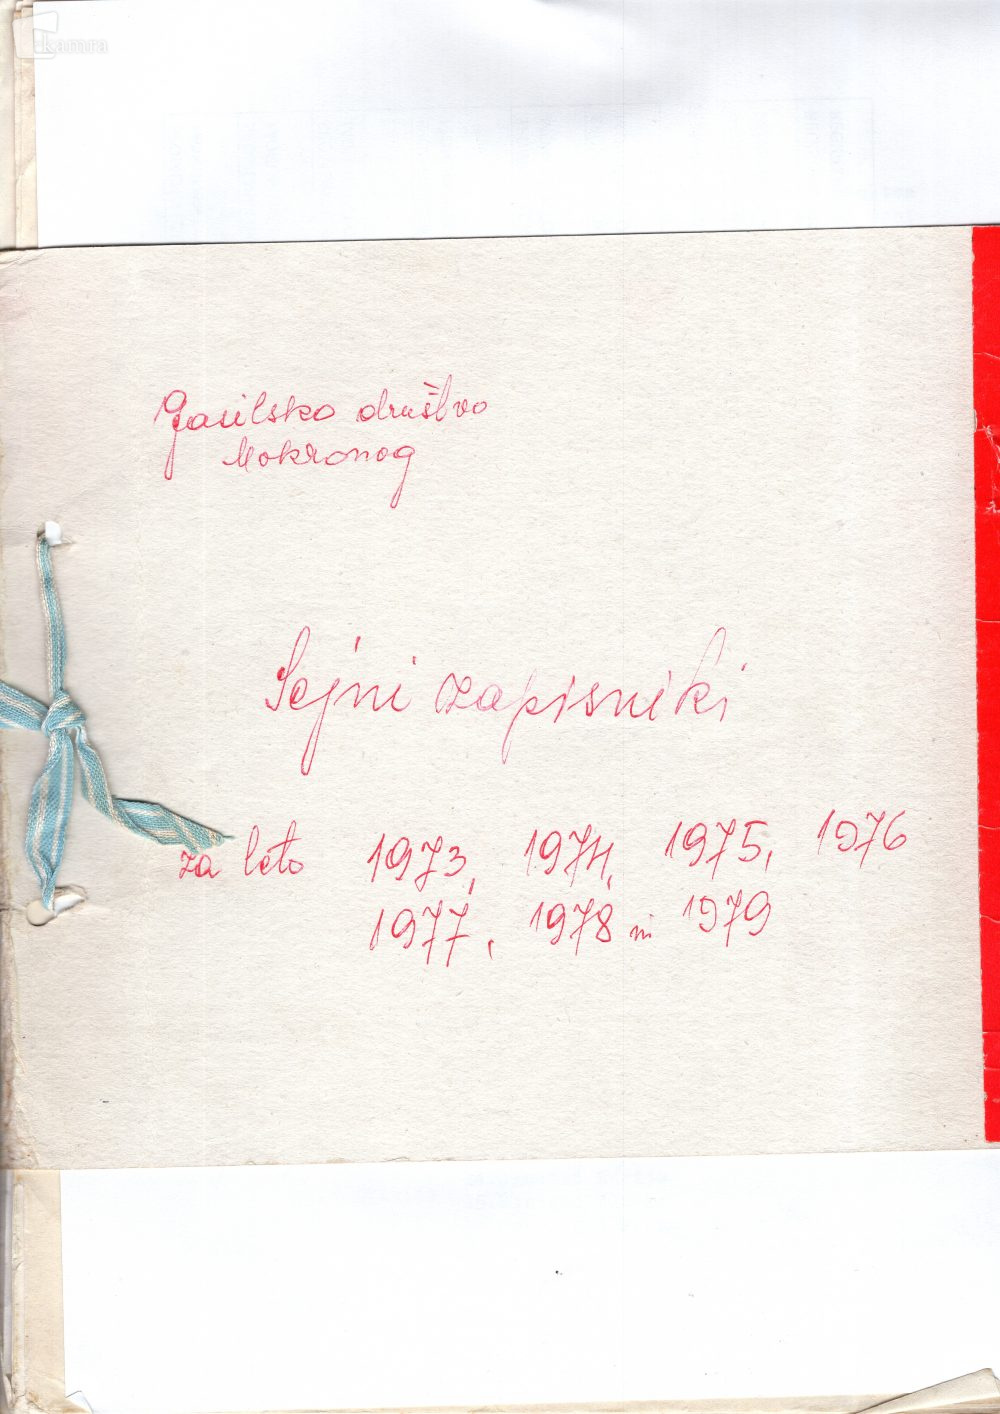 kamra
Gasilsko društvo
Mokronog
Sejni zapisniki
za leto 1973, 1974, 1975, 1976
1977, 1978 in 1979